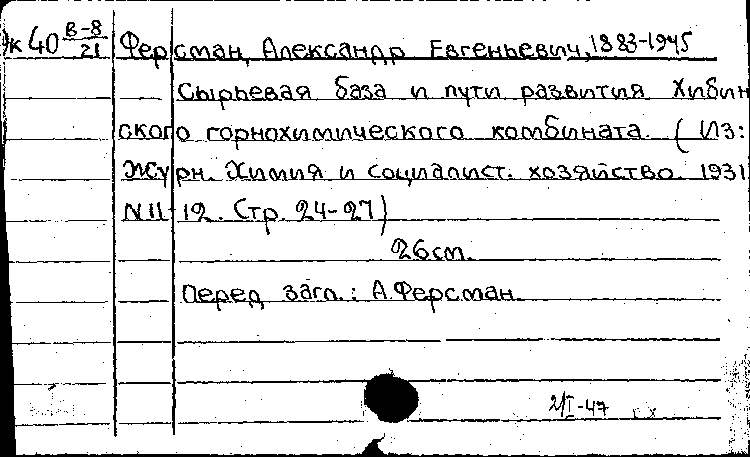 Ж 40 В-8/21 Ферсман, Александр Евгеньевич, 1883-1945
Сырьевая база и пути развития Хибин
ского горнохимического комбината. (Из:
Журн. Химия и социалист. хозяйство. 1931
N 11-12. Стр. 24-27)
26 см.
Перед загл.: А. Ферсман.
2/I-47